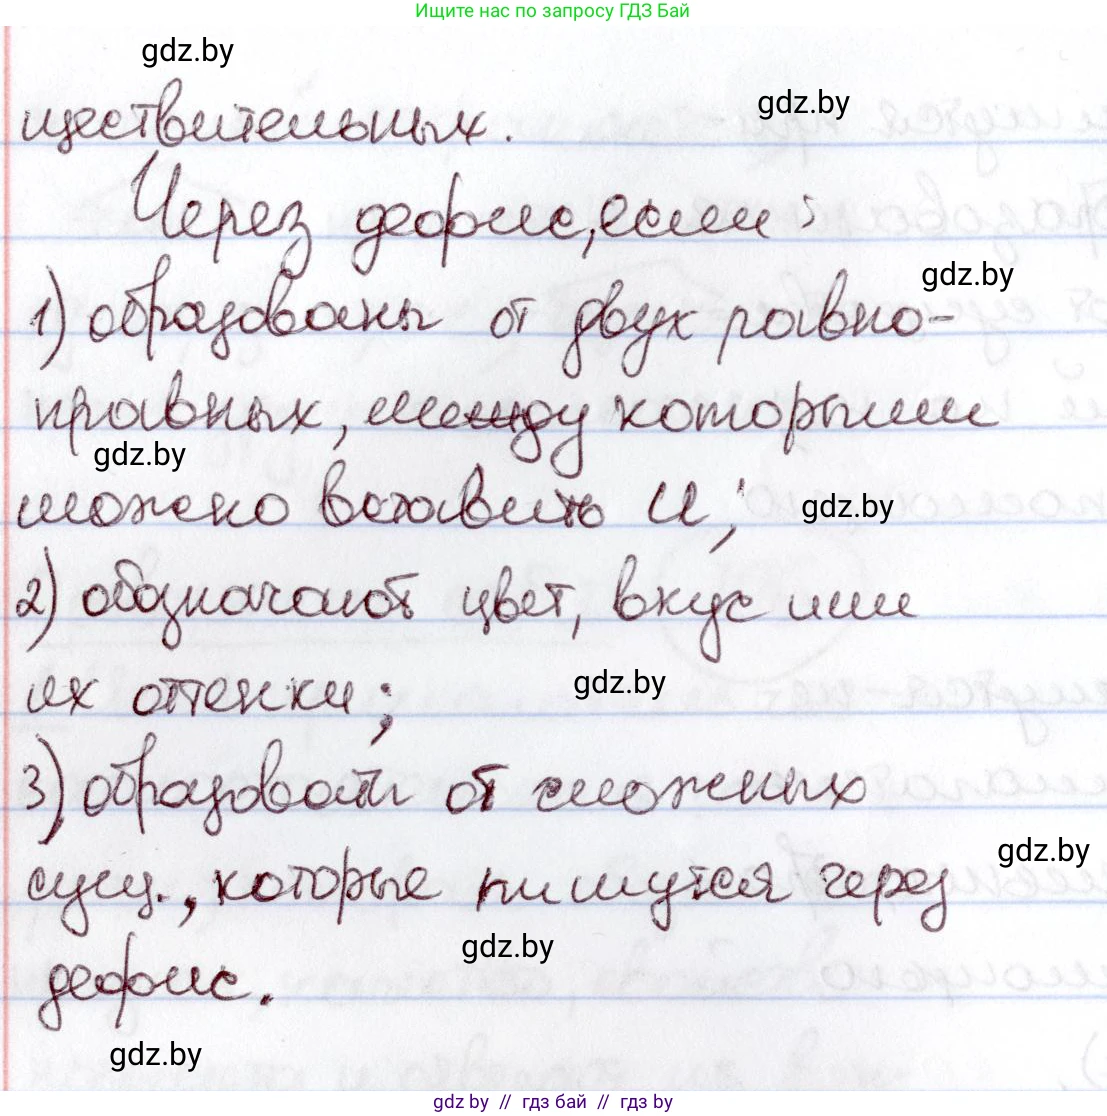 Ищите нас по запросу ГДЗ Бай
gdz.by
ществительных.
gdz.by
Через дефис, если:
gdz.by
1) образованы от двух равно-
правных, между которыми
gdz.by
можно вставить И;
gdz.by
2) обозначают цвет, вкус или
их оттенки;
gdz.by
3) образованы от сложных
gdz.by
сущ., которые пишутся через
gdz.by
дефис.
gdz.by
gdz.by // гдз бай // гдз by